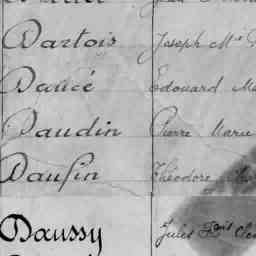 Dartois Joseph Mie
Daucé Édouard
Daudin Pierre Marie
Daufin Théodore
Daussy Jules Fçois